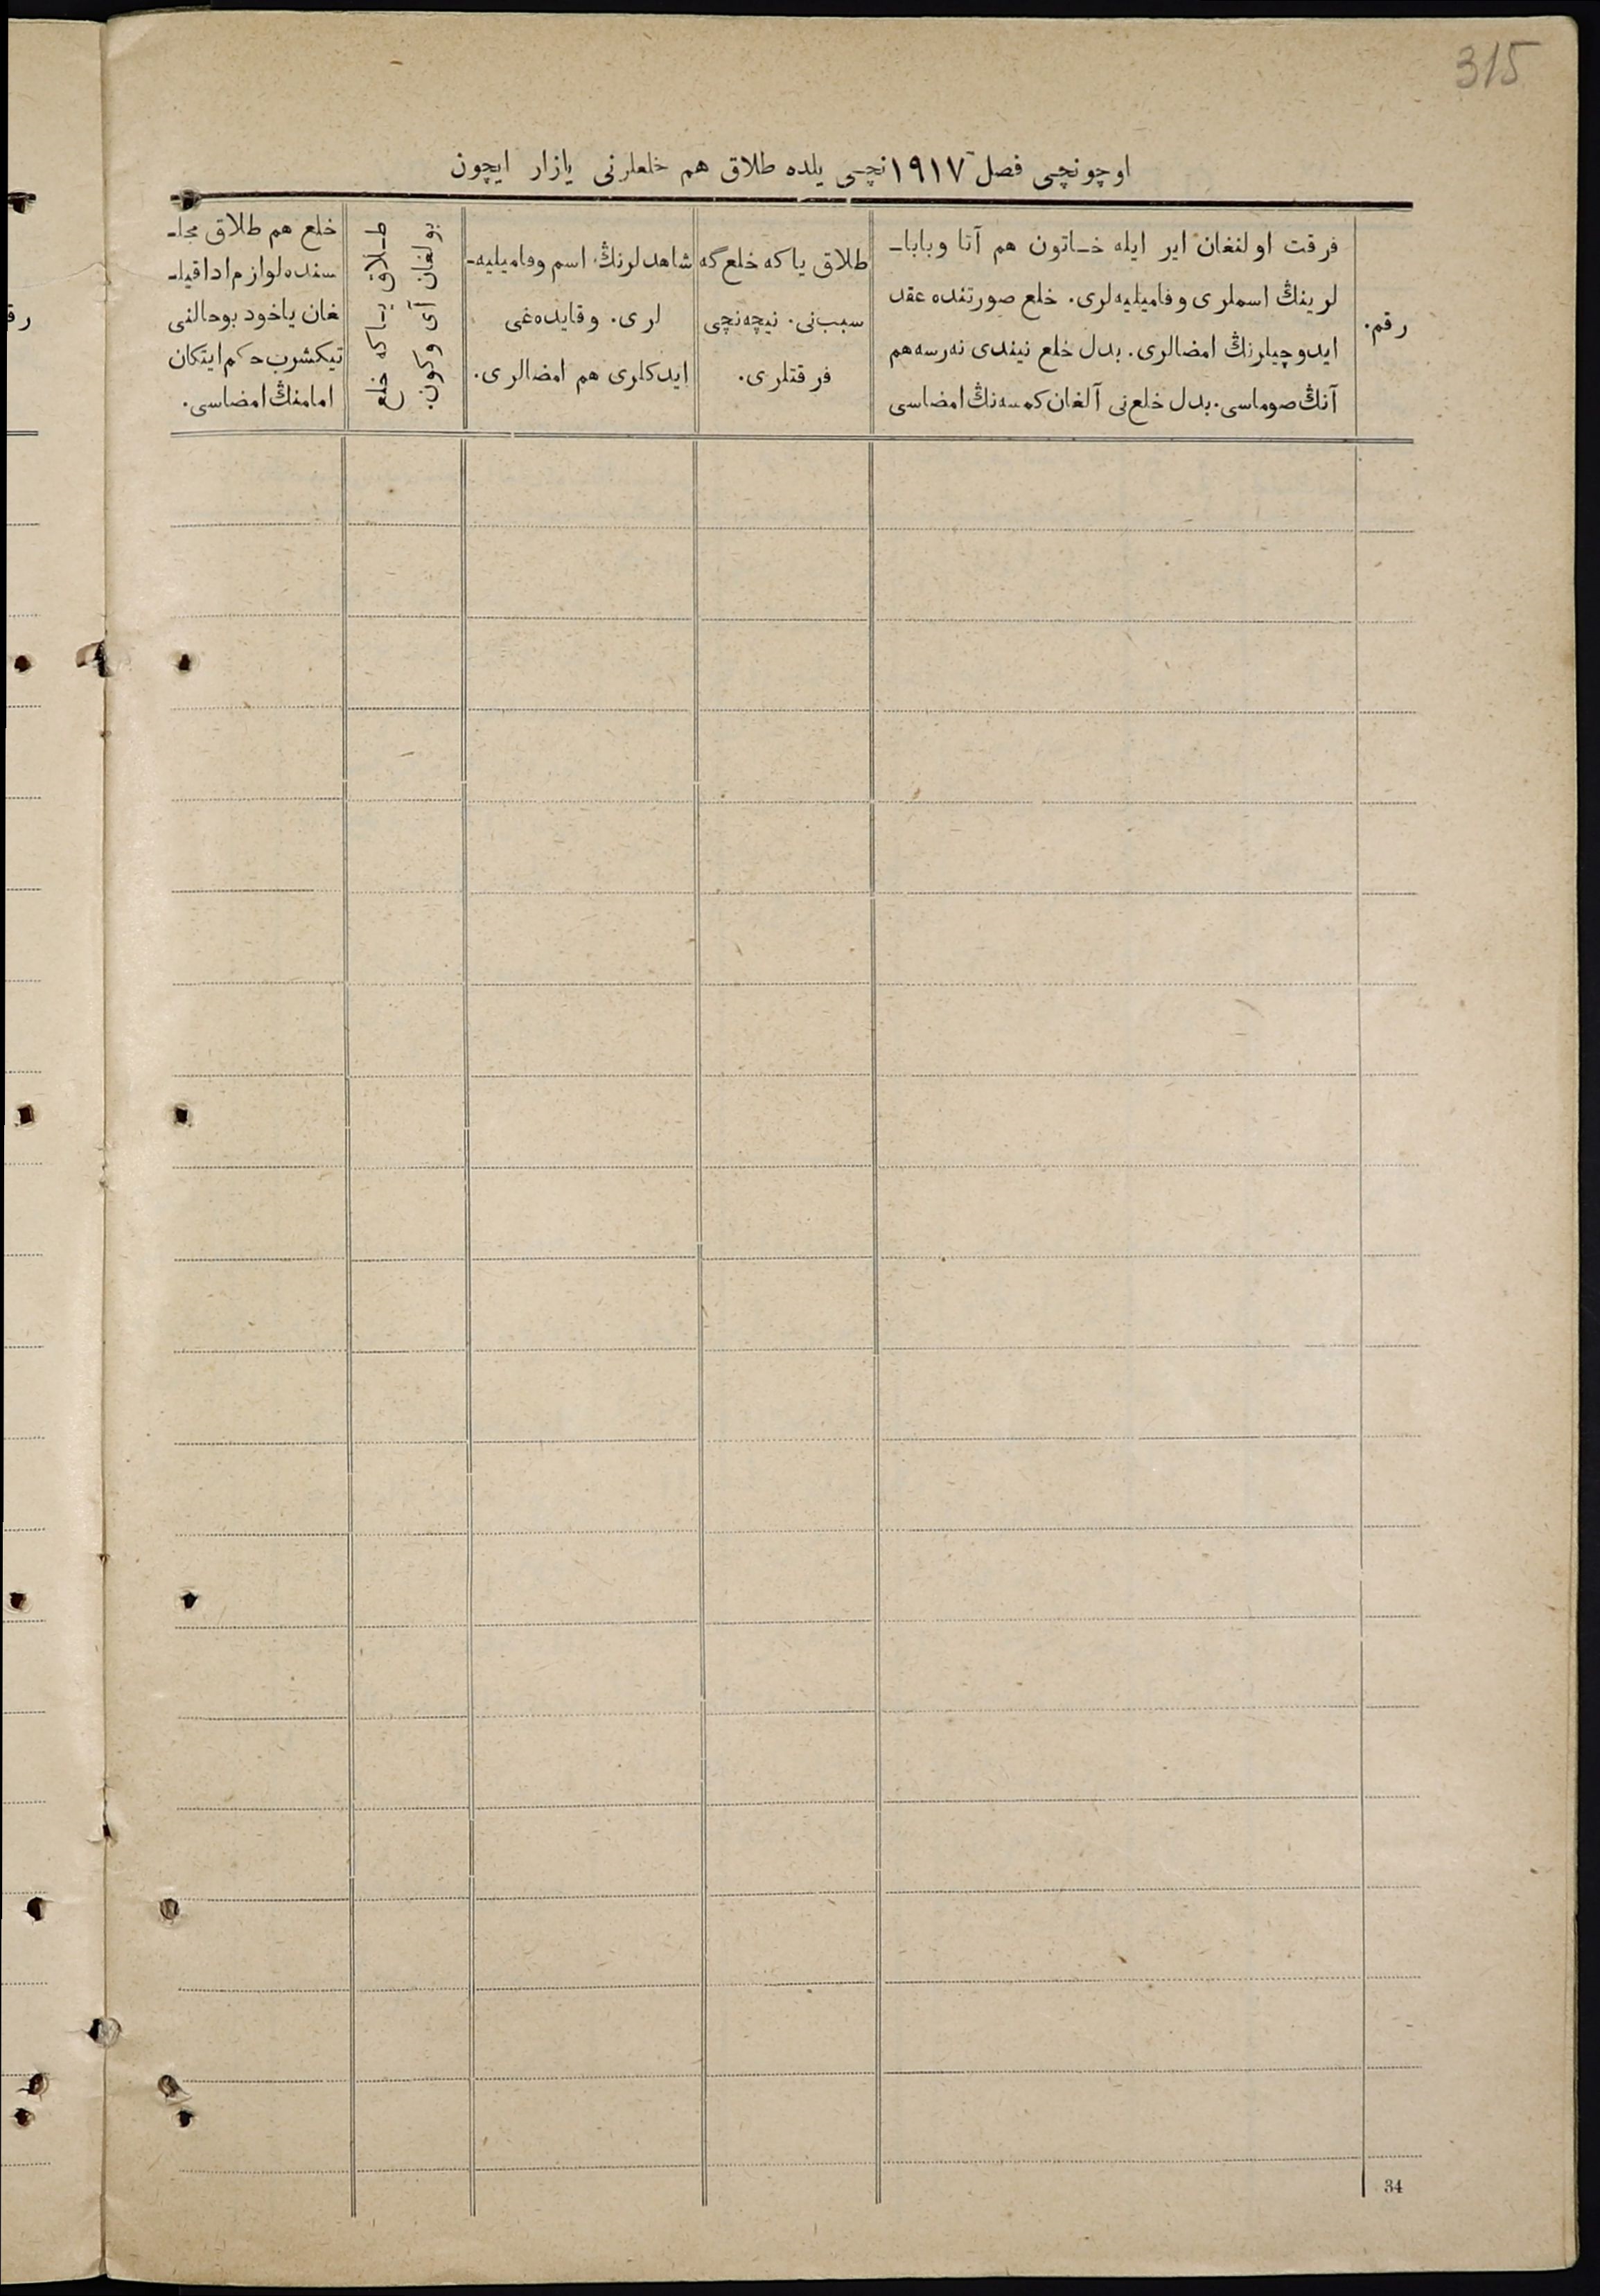 315
اوچونچی فصل ١٩١٧نچی یلده طلاق هم خلعلرنی یازار ایچون
رقم.
فرقت اولنغان ایر ایله خـاتون هم آتا وباباـ
لرینڭ اسملری وفامیلیه‌لری. خلع صورتنده عقد
ایدوچیلرنڭ امضالری. بدل خلع نیندی نه‌رسه هم
آنڭ صوماسی. بدل خلع‌نی آلغان کمسه‌نڭ امضاسی
طلاق یاکه خلع‌گه
سبب‌نی. نیچه‌نچی
فرقتلری.
شاهدلرنڭ اسم وفامیلیه‌ـ
لری. وقایده‌غی
ایدکلری هم امضالری.
طـلاق یـاکه خلع
بولغان آی وکون.
خلع هم طلاق مجلـ
سنده لوازم ادا قیلـ
غان یاخود بوحالنی
تیکشرب حکم ایتکان
امامنڭ امضاسی.
34